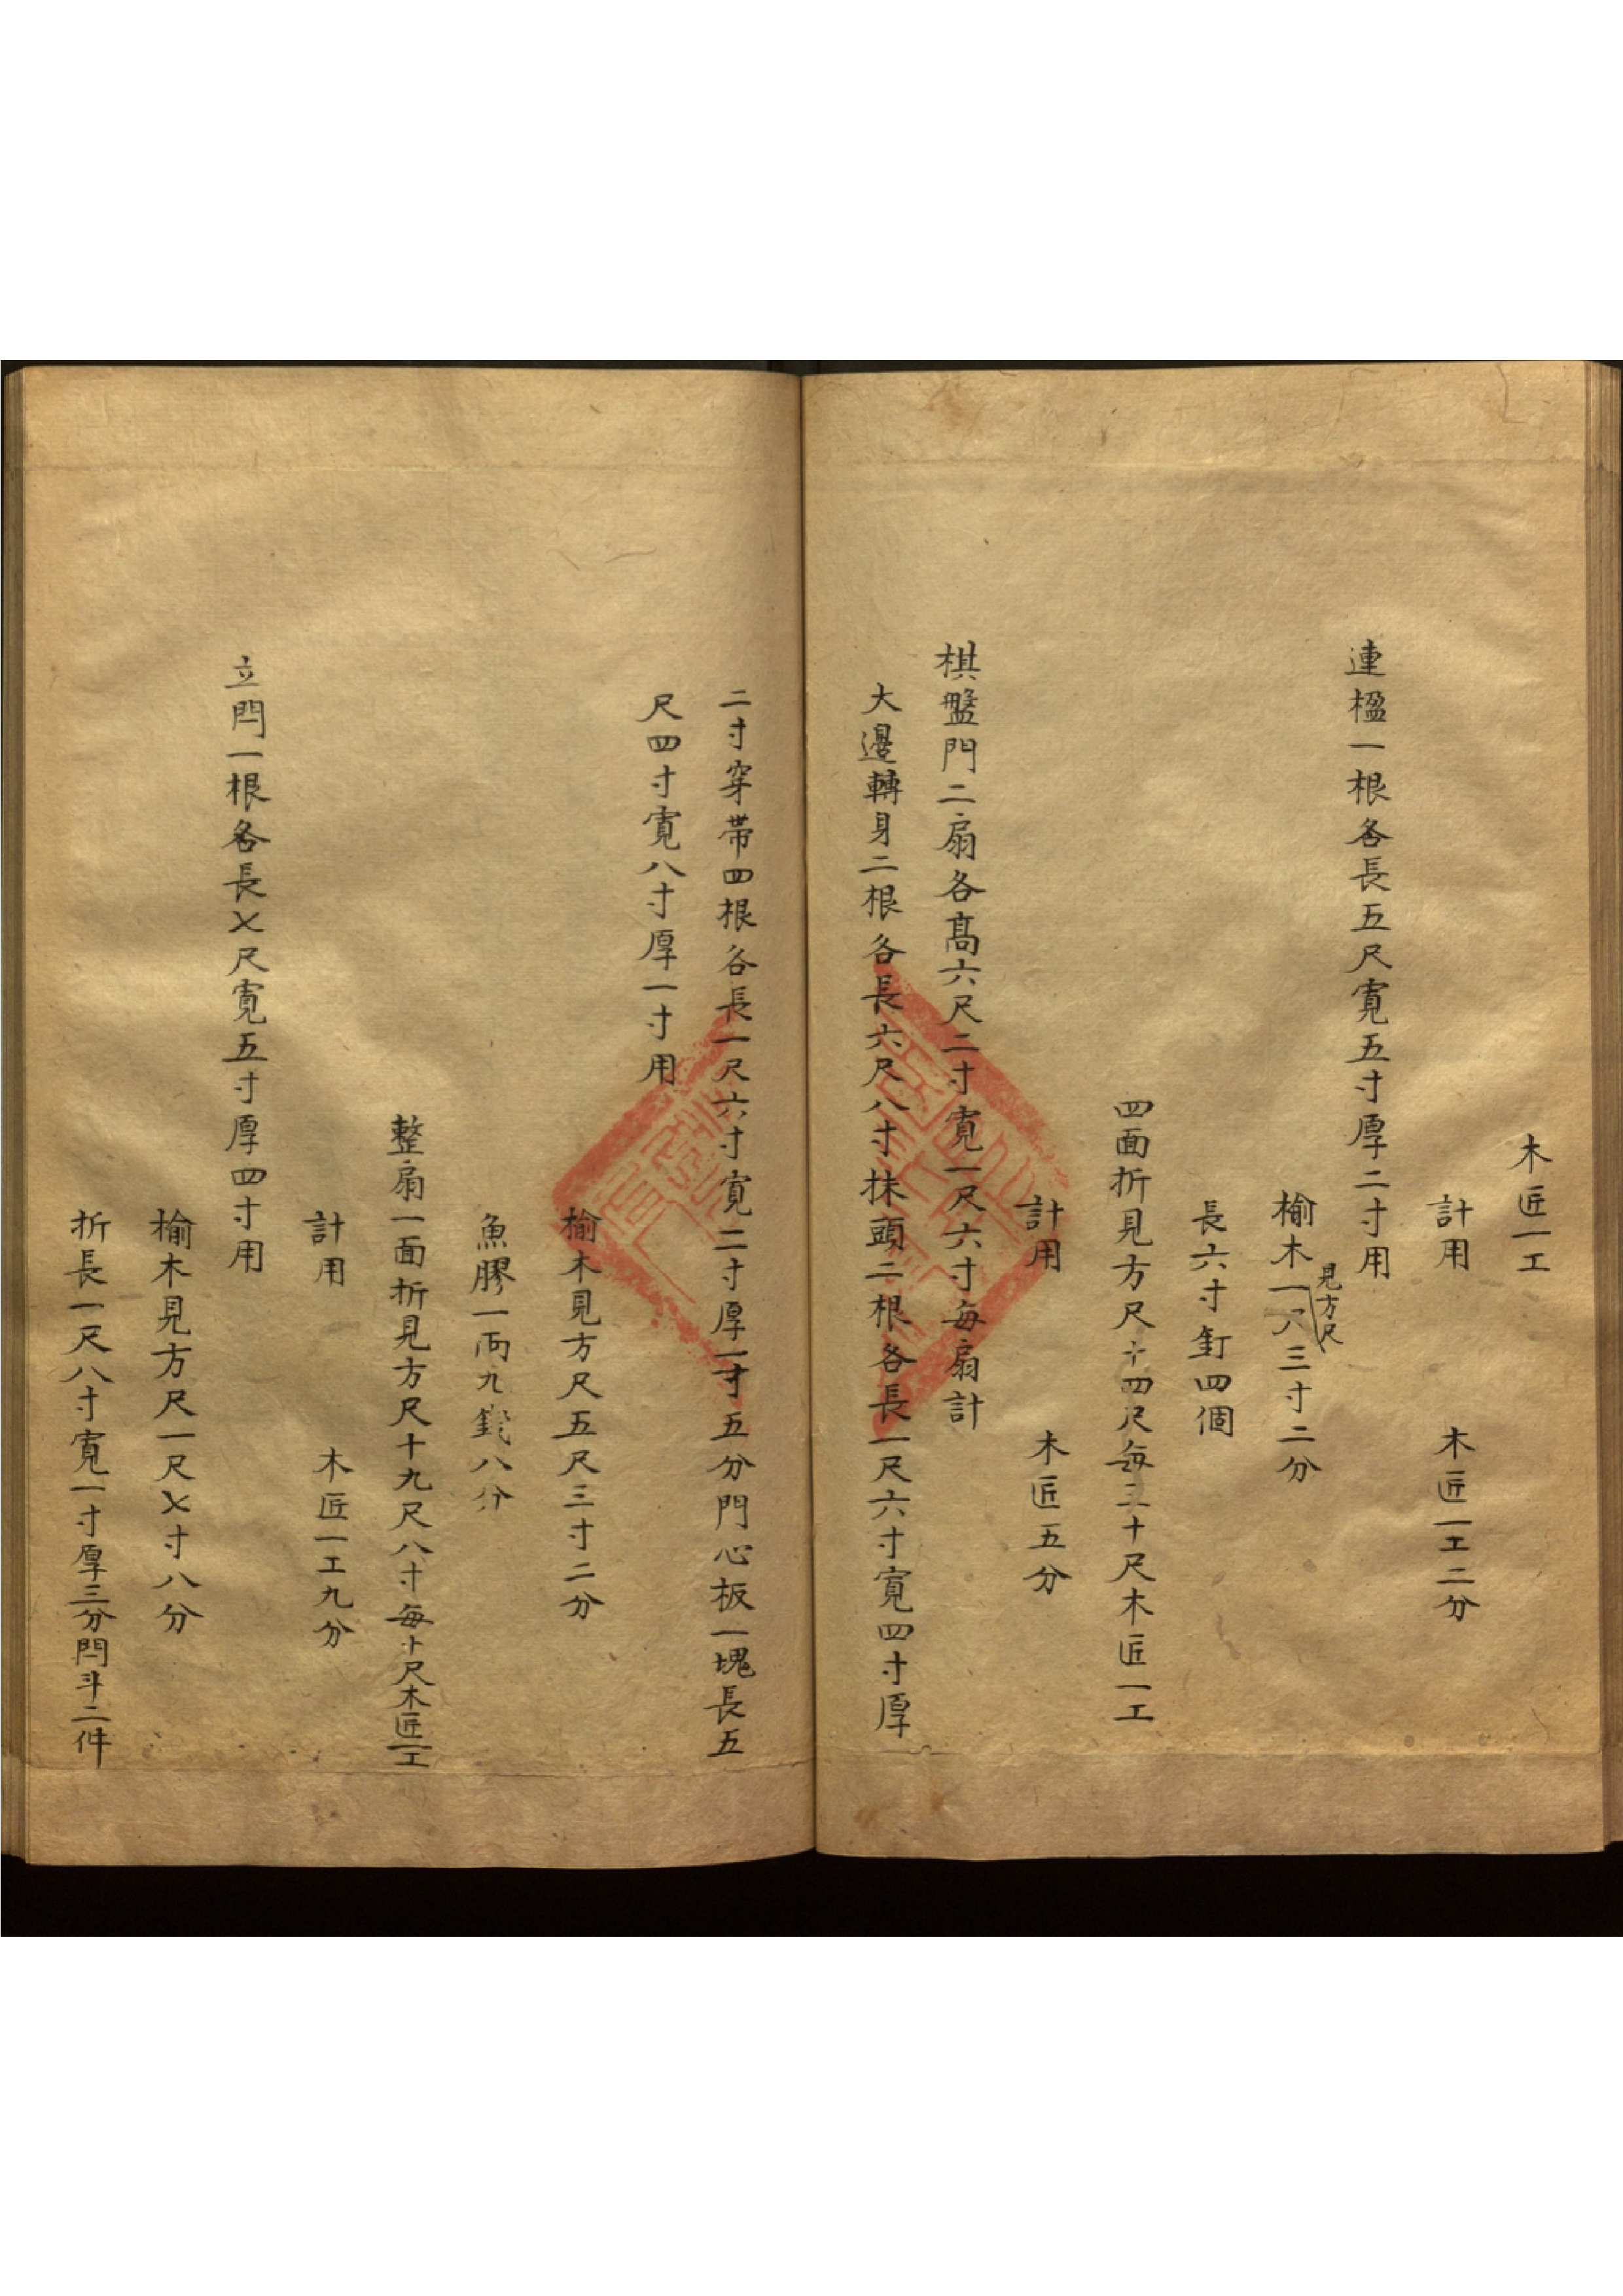 木匠一工
計用　木匠一工二分
連楹一根各長五尺寬五寸厚二寸用
榆木見方尺一尺三寸二分
長六寸釘四個
四面折見方尺十四尺每三十尺木匠一工
計用　木匠五分
棋盤門二扇各高六尺二寸寬一尺六寸每扇計
大邊轉身二根各長六尺八寸抹頭二根各長一尺六寸寬四寸厚
二寸穿帶四根各長一尺六寸寬二寸厚一寸五分門心板一塊長五
尺四寸寬八寸厚一寸用
榆木見方尺五尺三寸二分
魚膠一兩九錢八分
整扇一面折見方尺十九尺八寸每十尺木匠一工
計用　木匠一工九分
立閂一根各長七尺寬五寸厚四寸用
榆木見方尺一尺七寸八分
折長一尺八寸寬一寸厚三分閂斗二件